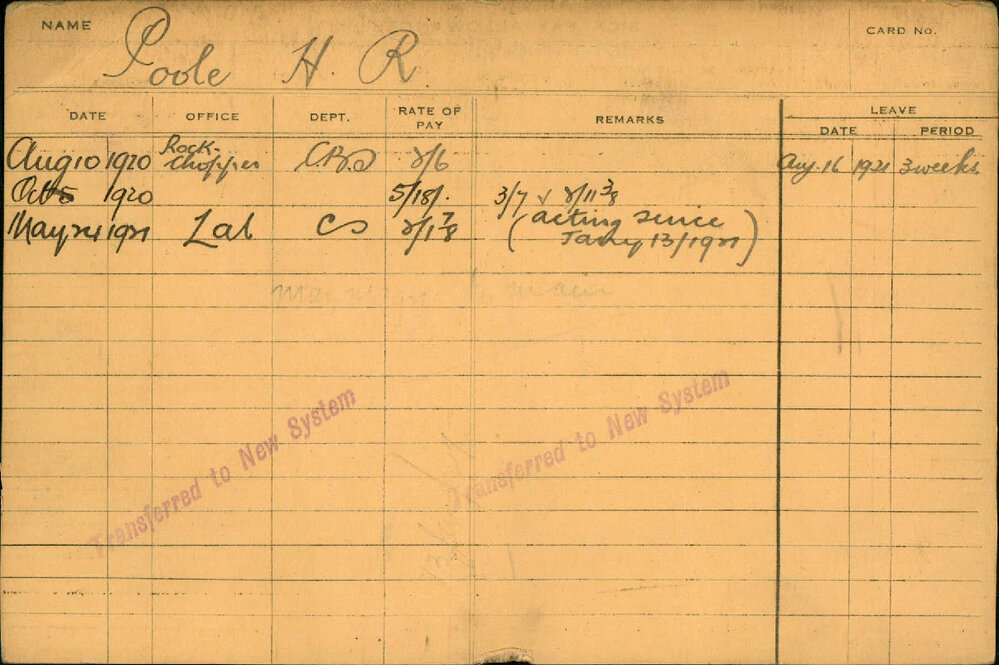 NAME Poole H. R. CARD No.
DATE OFFICE DEPT. RATE OF PAY REMARKS LEAVE
DATE PERIOD
Aug 10 1920 Rock-chopper 2/6 Aug. 16 1921 3 weeks
Oct 5 1920 5/18/. 3/7 & 2/11 3/8
May 24 1921 Lab 2/1 7/8 (acting since
Jany 13/1921)
Transferred to New System
Transferred to New System